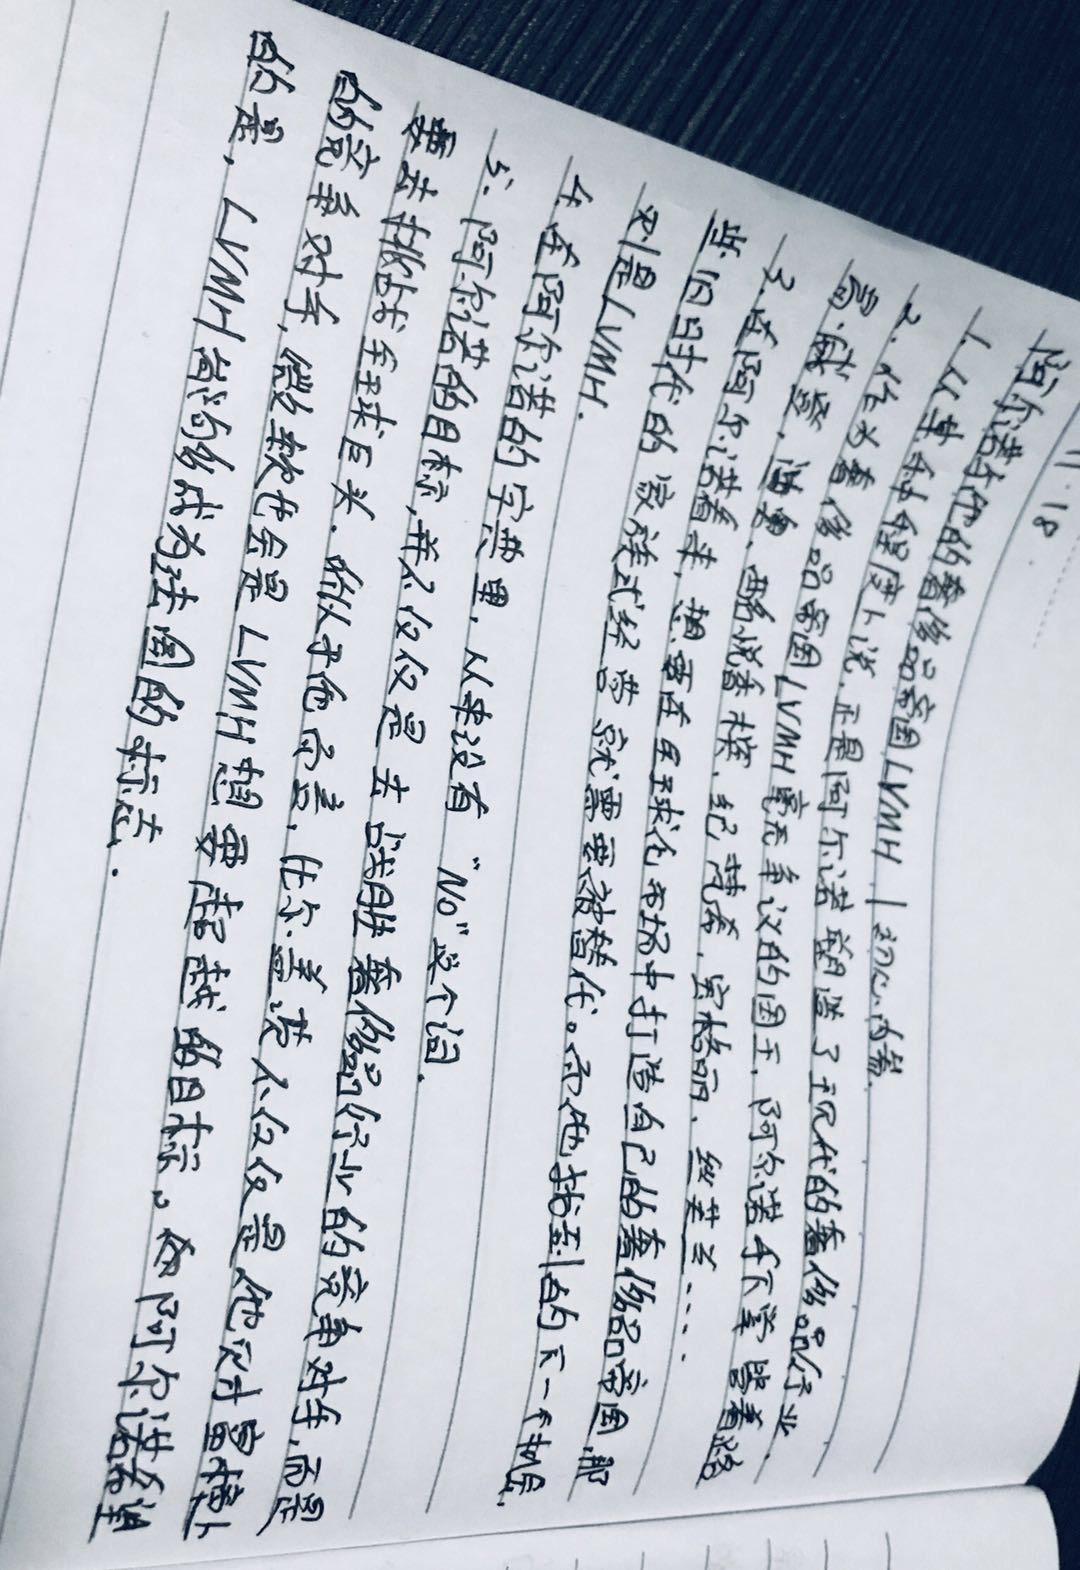 11.18
阿尔诺和他的奢侈品帝国LVMH | 初心内参.
1. 从某种程度上说,正是阿尔诺塑造了现代的奢侈品行业.
2. 作为奢侈品帝国LVMH毫无争议的国王,阿尔诺手下掌管着路
易·威登、迪奥、酩悦香槟、纪梵希、宝格丽、丝芙兰....
3. 在阿尔诺看来,想要在全球化市场中打造自己的奢侈品帝国,那
些旧时代的家族式经营就需要被替代。而他找到的下一个机会
则是LVMH.
4. 在阿尔诺的字典里,从来没有“No”这个词.
5. 阿尔诺的目标,并不仅仅是去战胜奢侈品行业的竞争对手,而是
要去挑战全球巨头.似乎于他而言,比尔盖茨不仅仅是他财富榜上
的竞争对手,微软也会是LVMH想要超越的目标。而阿尔诺希望
的是,LVMH尚能成为法国的标志.